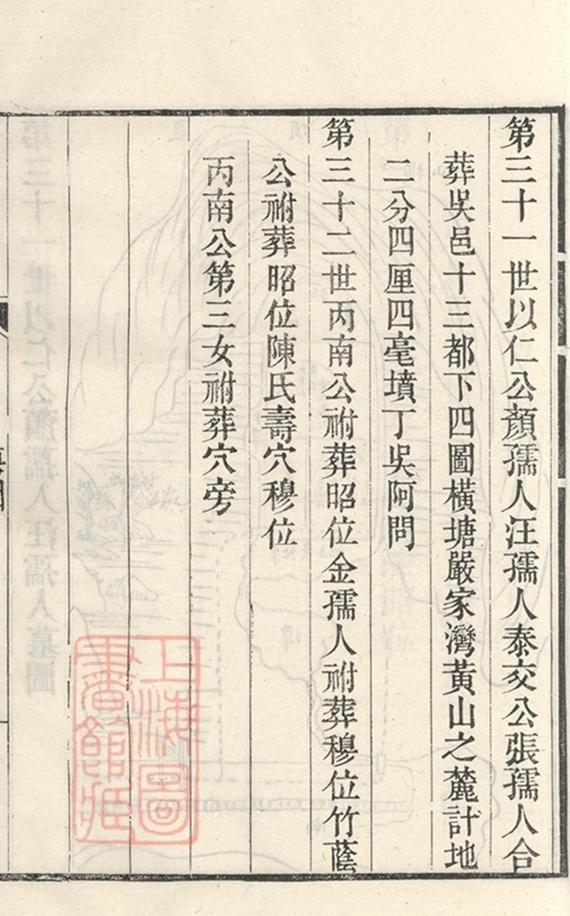 第三十一世以仁公顏孺人汪孺人泰交公張孺人合
葬吳邑十三都下四圖橫塘嚴家灣黃山之麓計地
二分四厘四毫墳丁吳阿問
第三十二世丙南公祔葬昭位金孺人祔葬穆位竹蔭
公祔葬昭位陳氏壽穴穆位
丙南公第三女祔葬穴旁
上海圖
書館藏